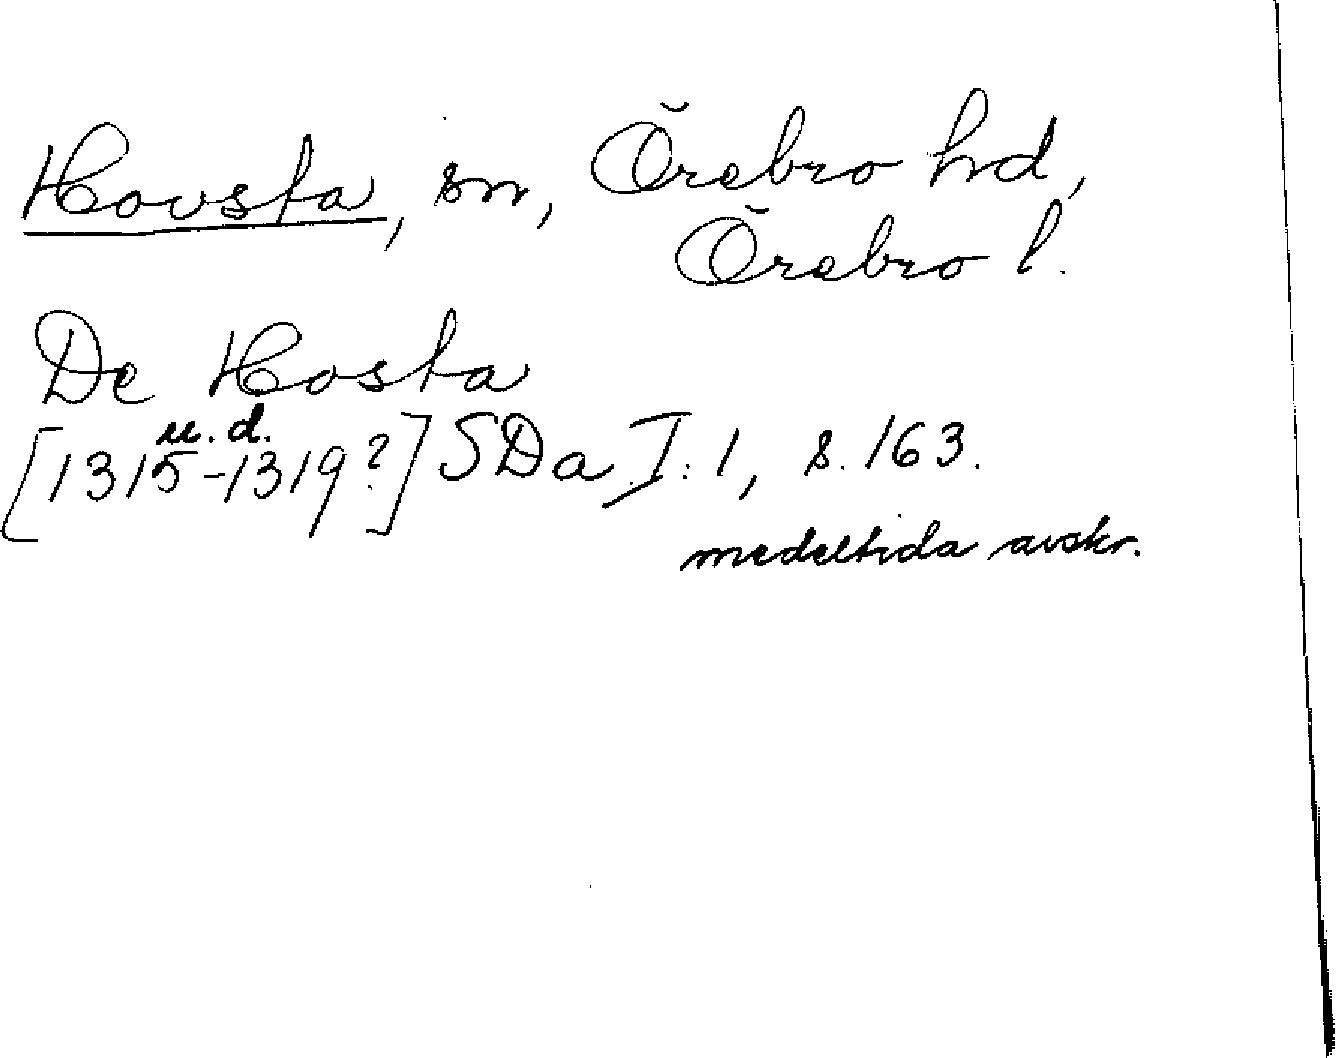 Hovsta, sn, Örebro hd,
Örebro l.
De Hosta
u. d.
[1315-1319?] SDa I:1, s. 163.
medeltida avskr.